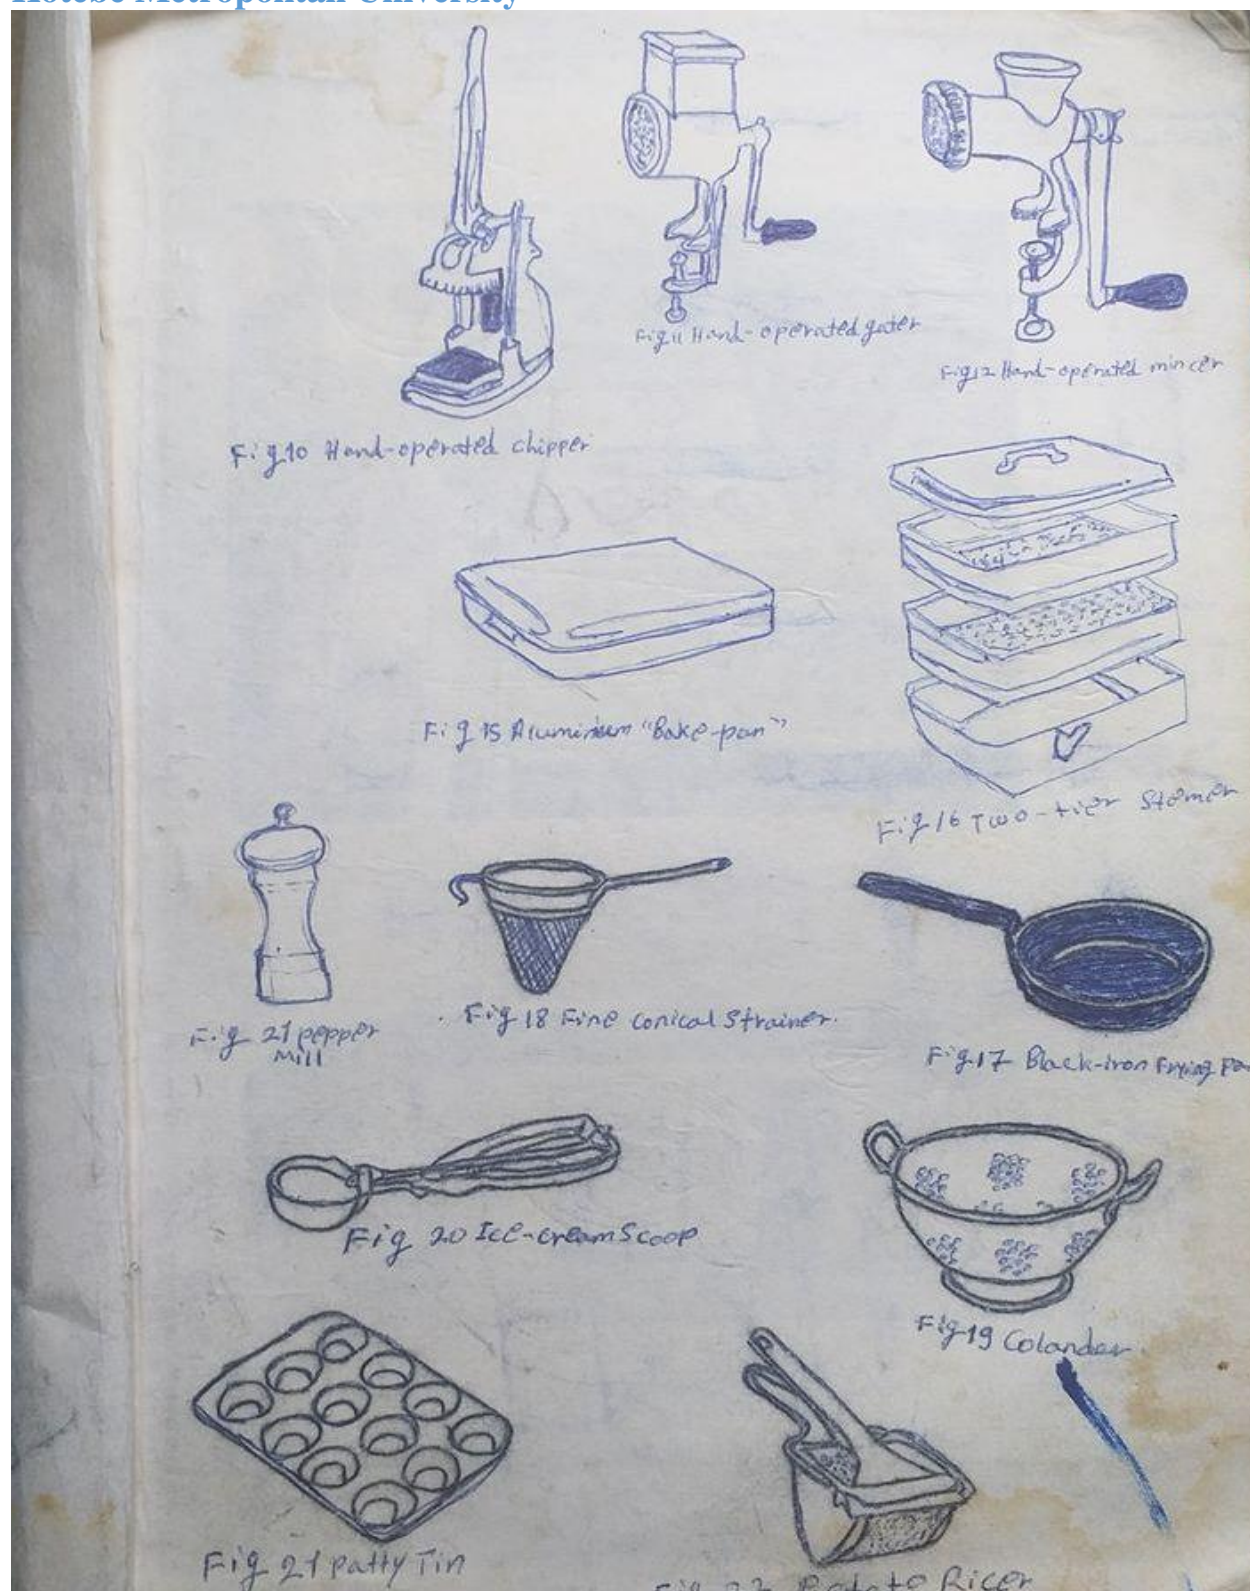 Kotebe Metropolitan University
Fig 11 Hand-operated gater
Fig 12 Hand-operated mincer
Fig 10 Hand-operated chipper
Fig 15 Aluminium "Bake-pan"
Fig 16 Two-tier Stemer
Fig 21 pepper
Mill
Fig 18 Fine conical Strainer.
Fig 17 Black-iron Frying Pa
Fig 20 Ice-cream Scoop
Fig 19 Colander
Fig 21 Patty Tin
Potato Ricer